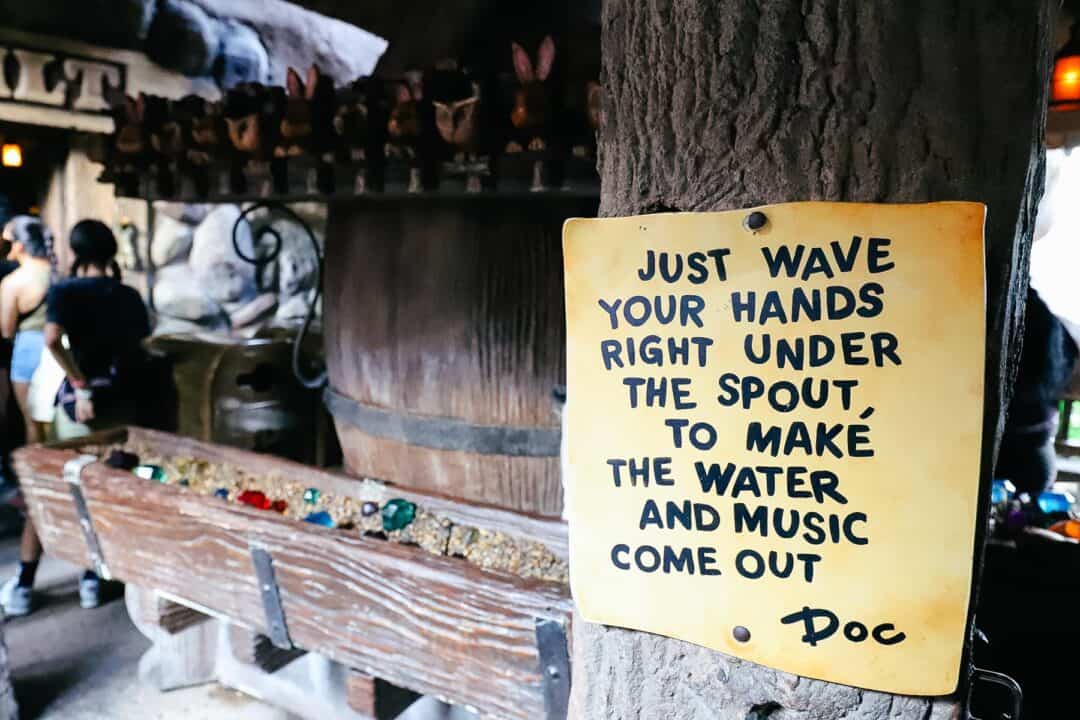 JUST WAVE
YOUR HANDS
RIGHT UNDER
THE SPOUT,
TO MAKÉ
THE WATER
AND MUSIC
COME OUT
Doc